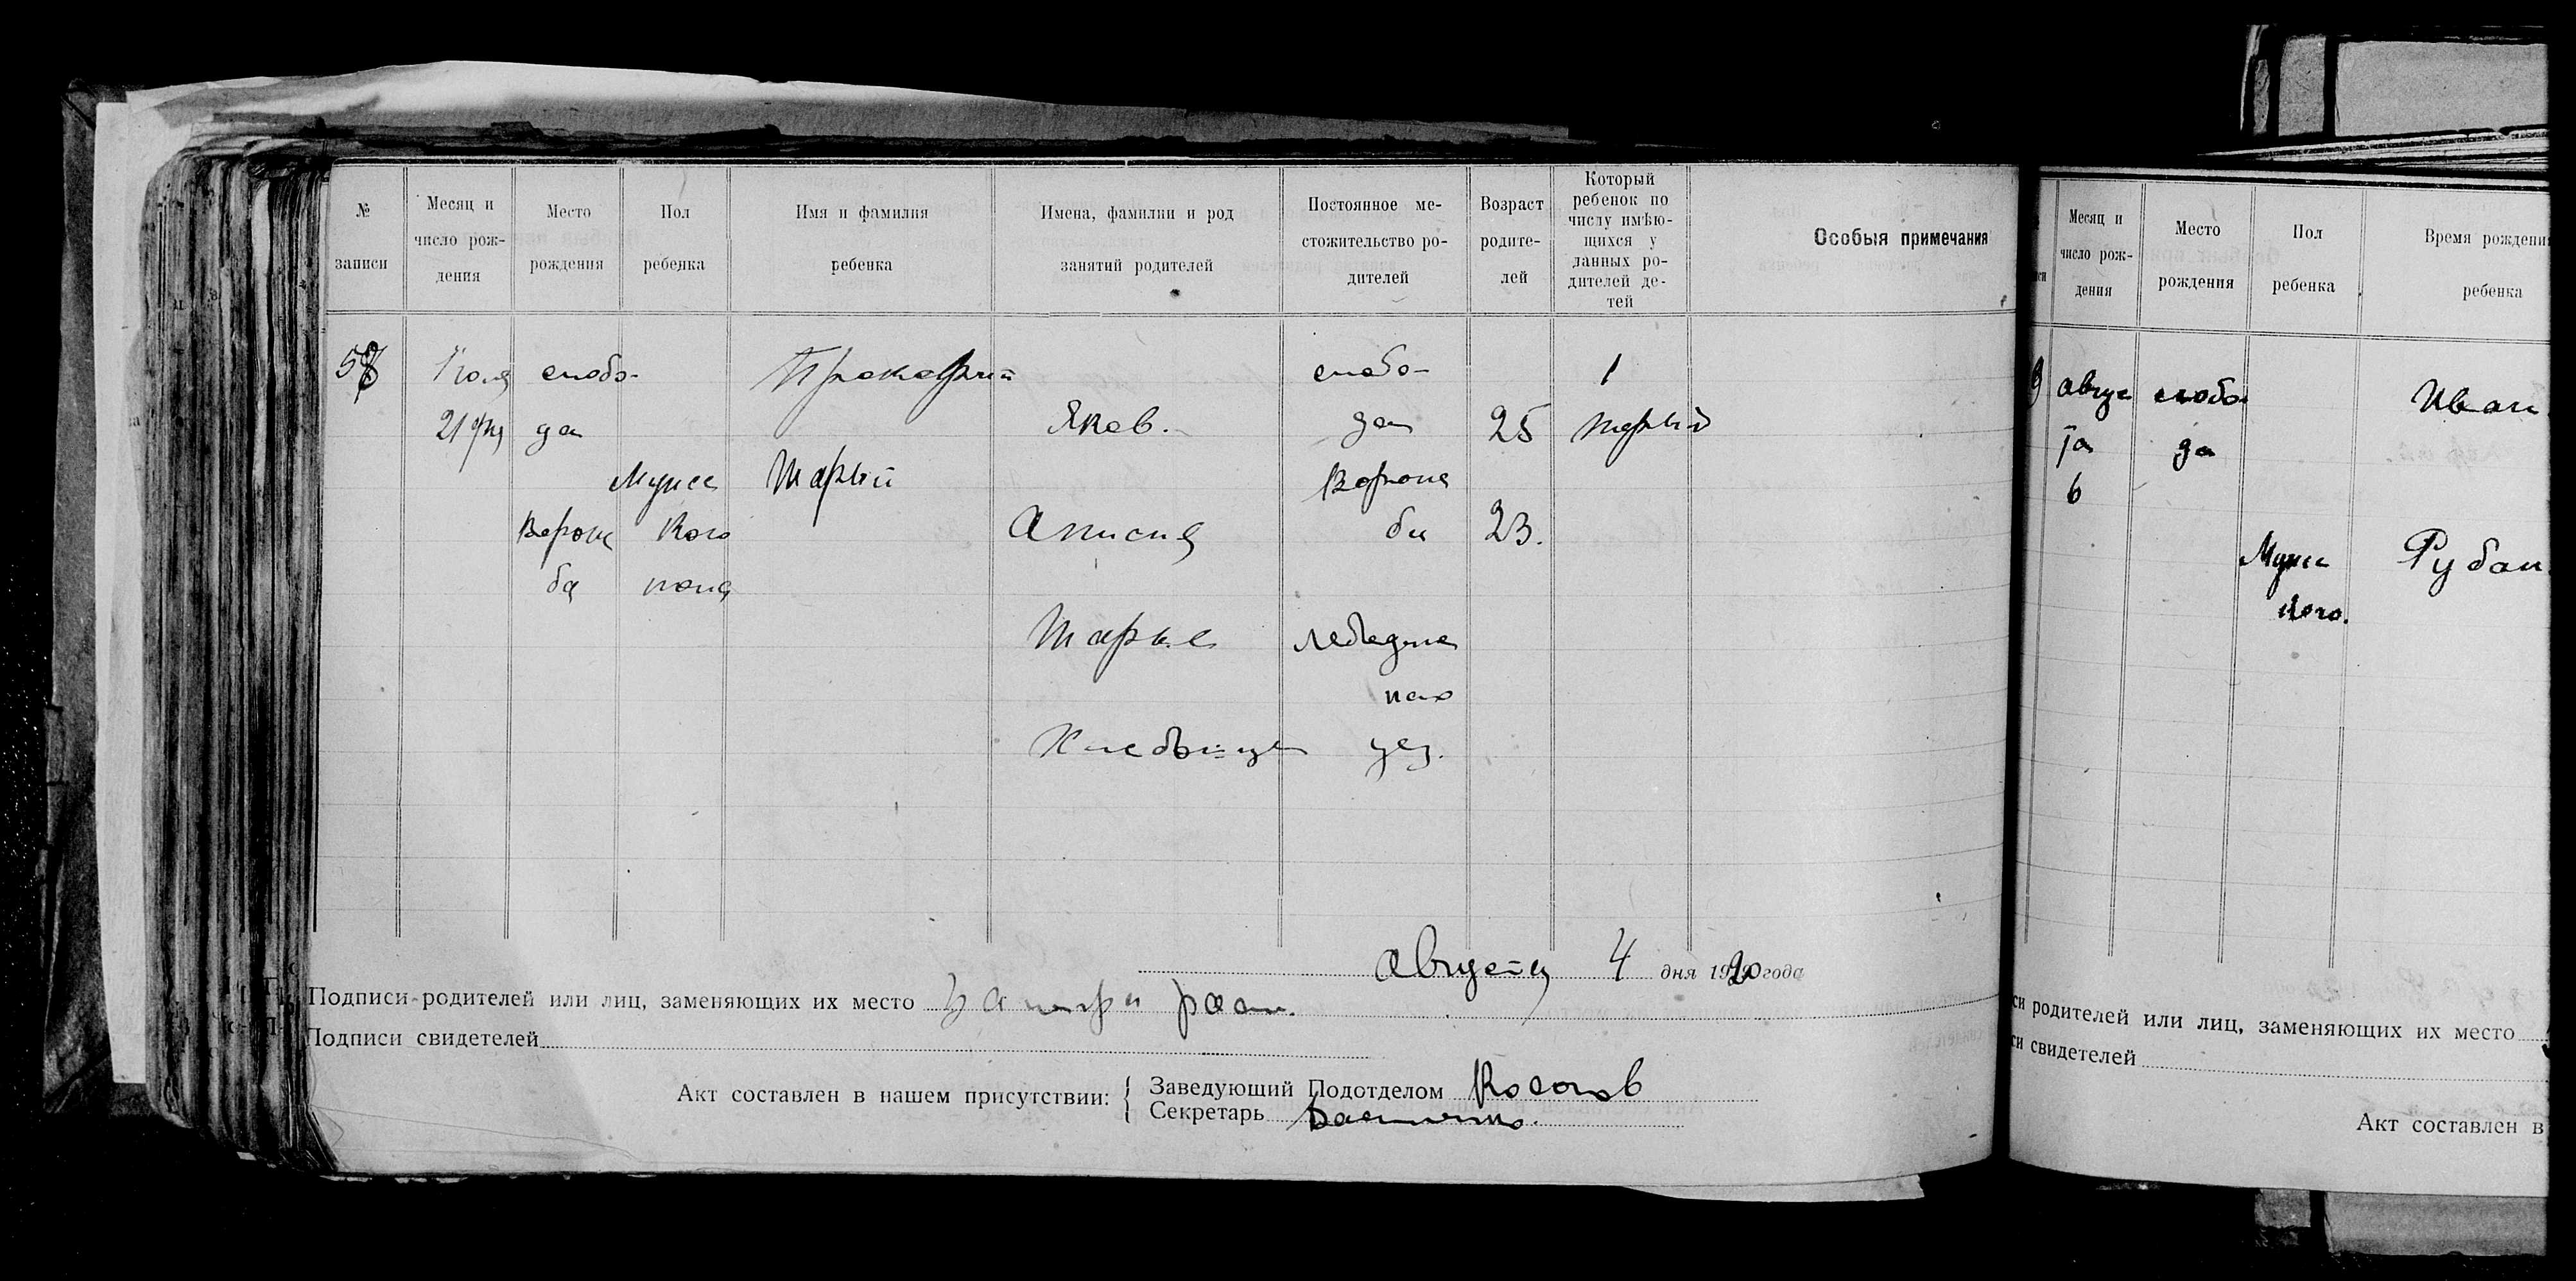 № записи
Месяц и число рождения
Место рождения
Пол ребенка
Имя и фамилия ребенка
Имена, фамилии и род занятий родителей
Постоянное местожительство родителей
Возраст родителей
Который ребенок по числу имѣющихся у данных родителей детей
Особыя примечания
58
Июля
21 дня
слобо-
да
Ворож
ба
Мужес
кого
пола
Прокофий
Шарый
Яков.
Анисия
Шарые
Хлебопаш
слобо-
да
Ворож
ба
Лебедин
уез.
25
23.
1
первый
Августа 4 дня 1920 года
Подписи родителей или лиц, заменяющих их место
Подписи свидетелей
Акт составлен в нашем присутствии:
Заведующий Подотделом
Секретарь
Месяц и
число рож-
дения
Место
рождения
Пол
ребенка
Время рождени
ребенка
авгус
та
6
слобо
да
Мужс
кого.
Иван
Рубан
си родителей или лиц, заменяющих их место
си свидетелей
Акт составлен в